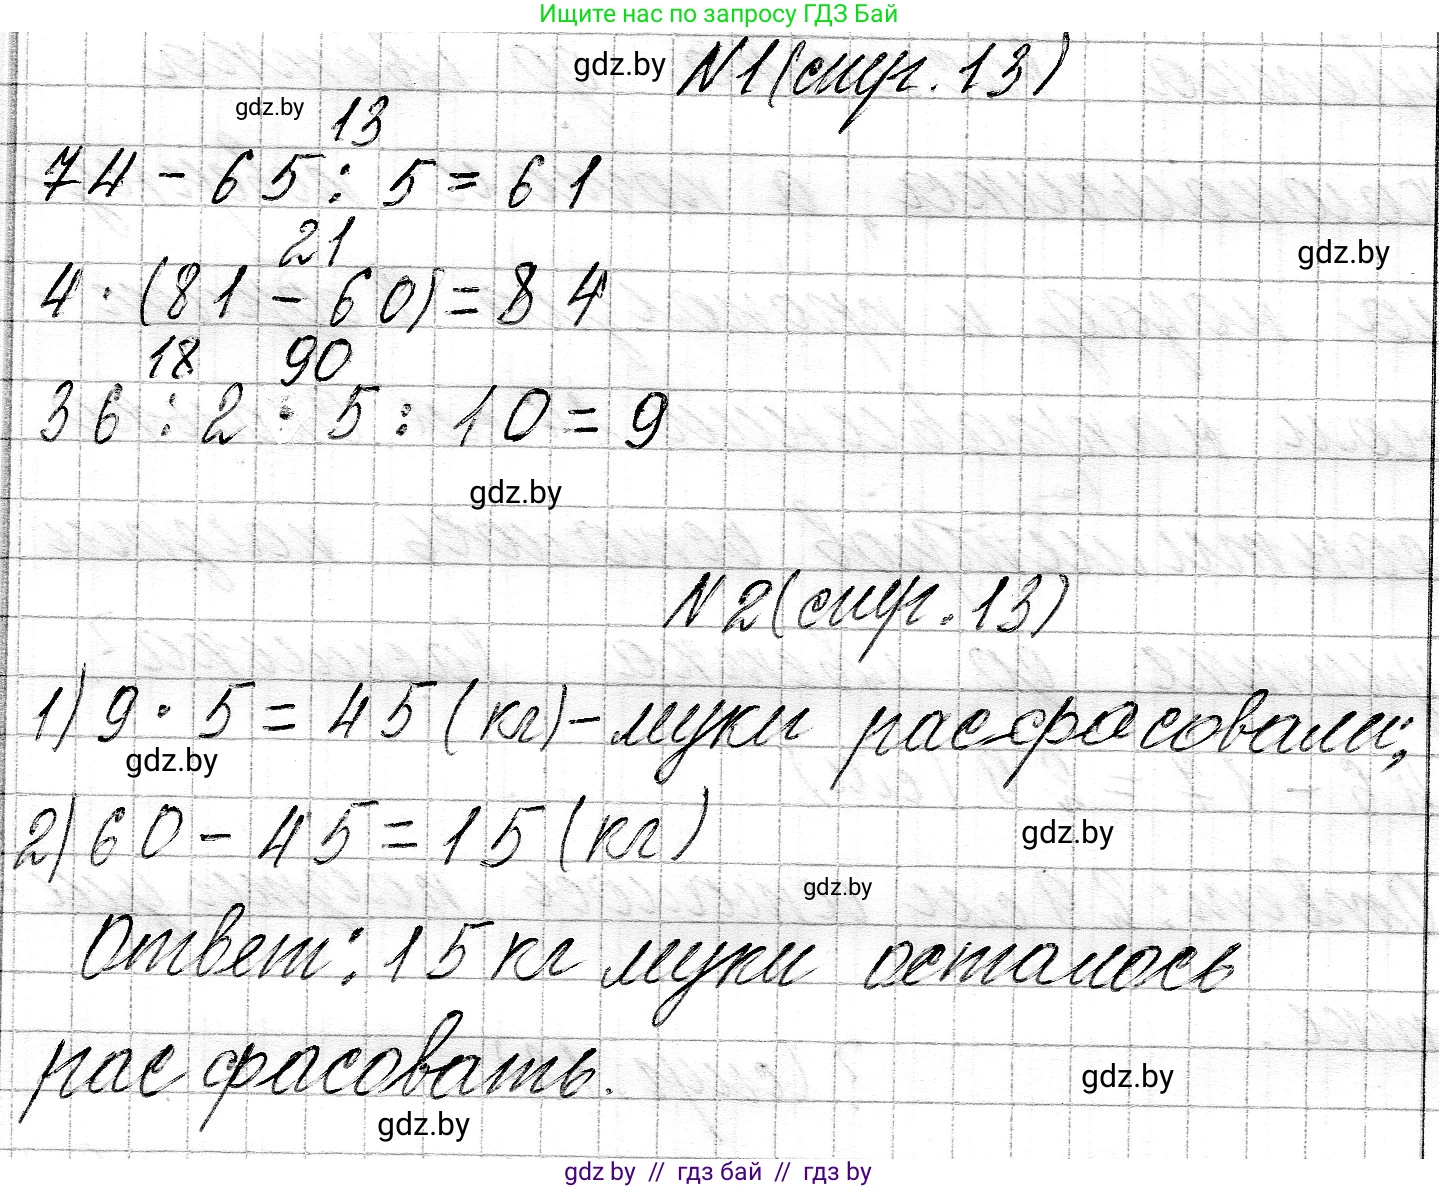 Ищите нас по запросу ГДЗ Бай
gdz.by
N1(стр. 13)
gdz.by
13
74 - 65 : 5 = 61
21
gdz.by
4 · (81 - 60) = 84
18 90
36 : 2 · 5 : 10 = 9
gdz.by
N2(стр. 13)
1) 9 · 5 = 45 (кг) - муки расфасовали;
gdz.by
2) 60 - 45 = 15 (кг)
gdz.by
gdz.by
Ответ: 15 кг муки осталось
расфасовать.
gdz.by
gdz.by
gdz by // гдз бай // гдз by